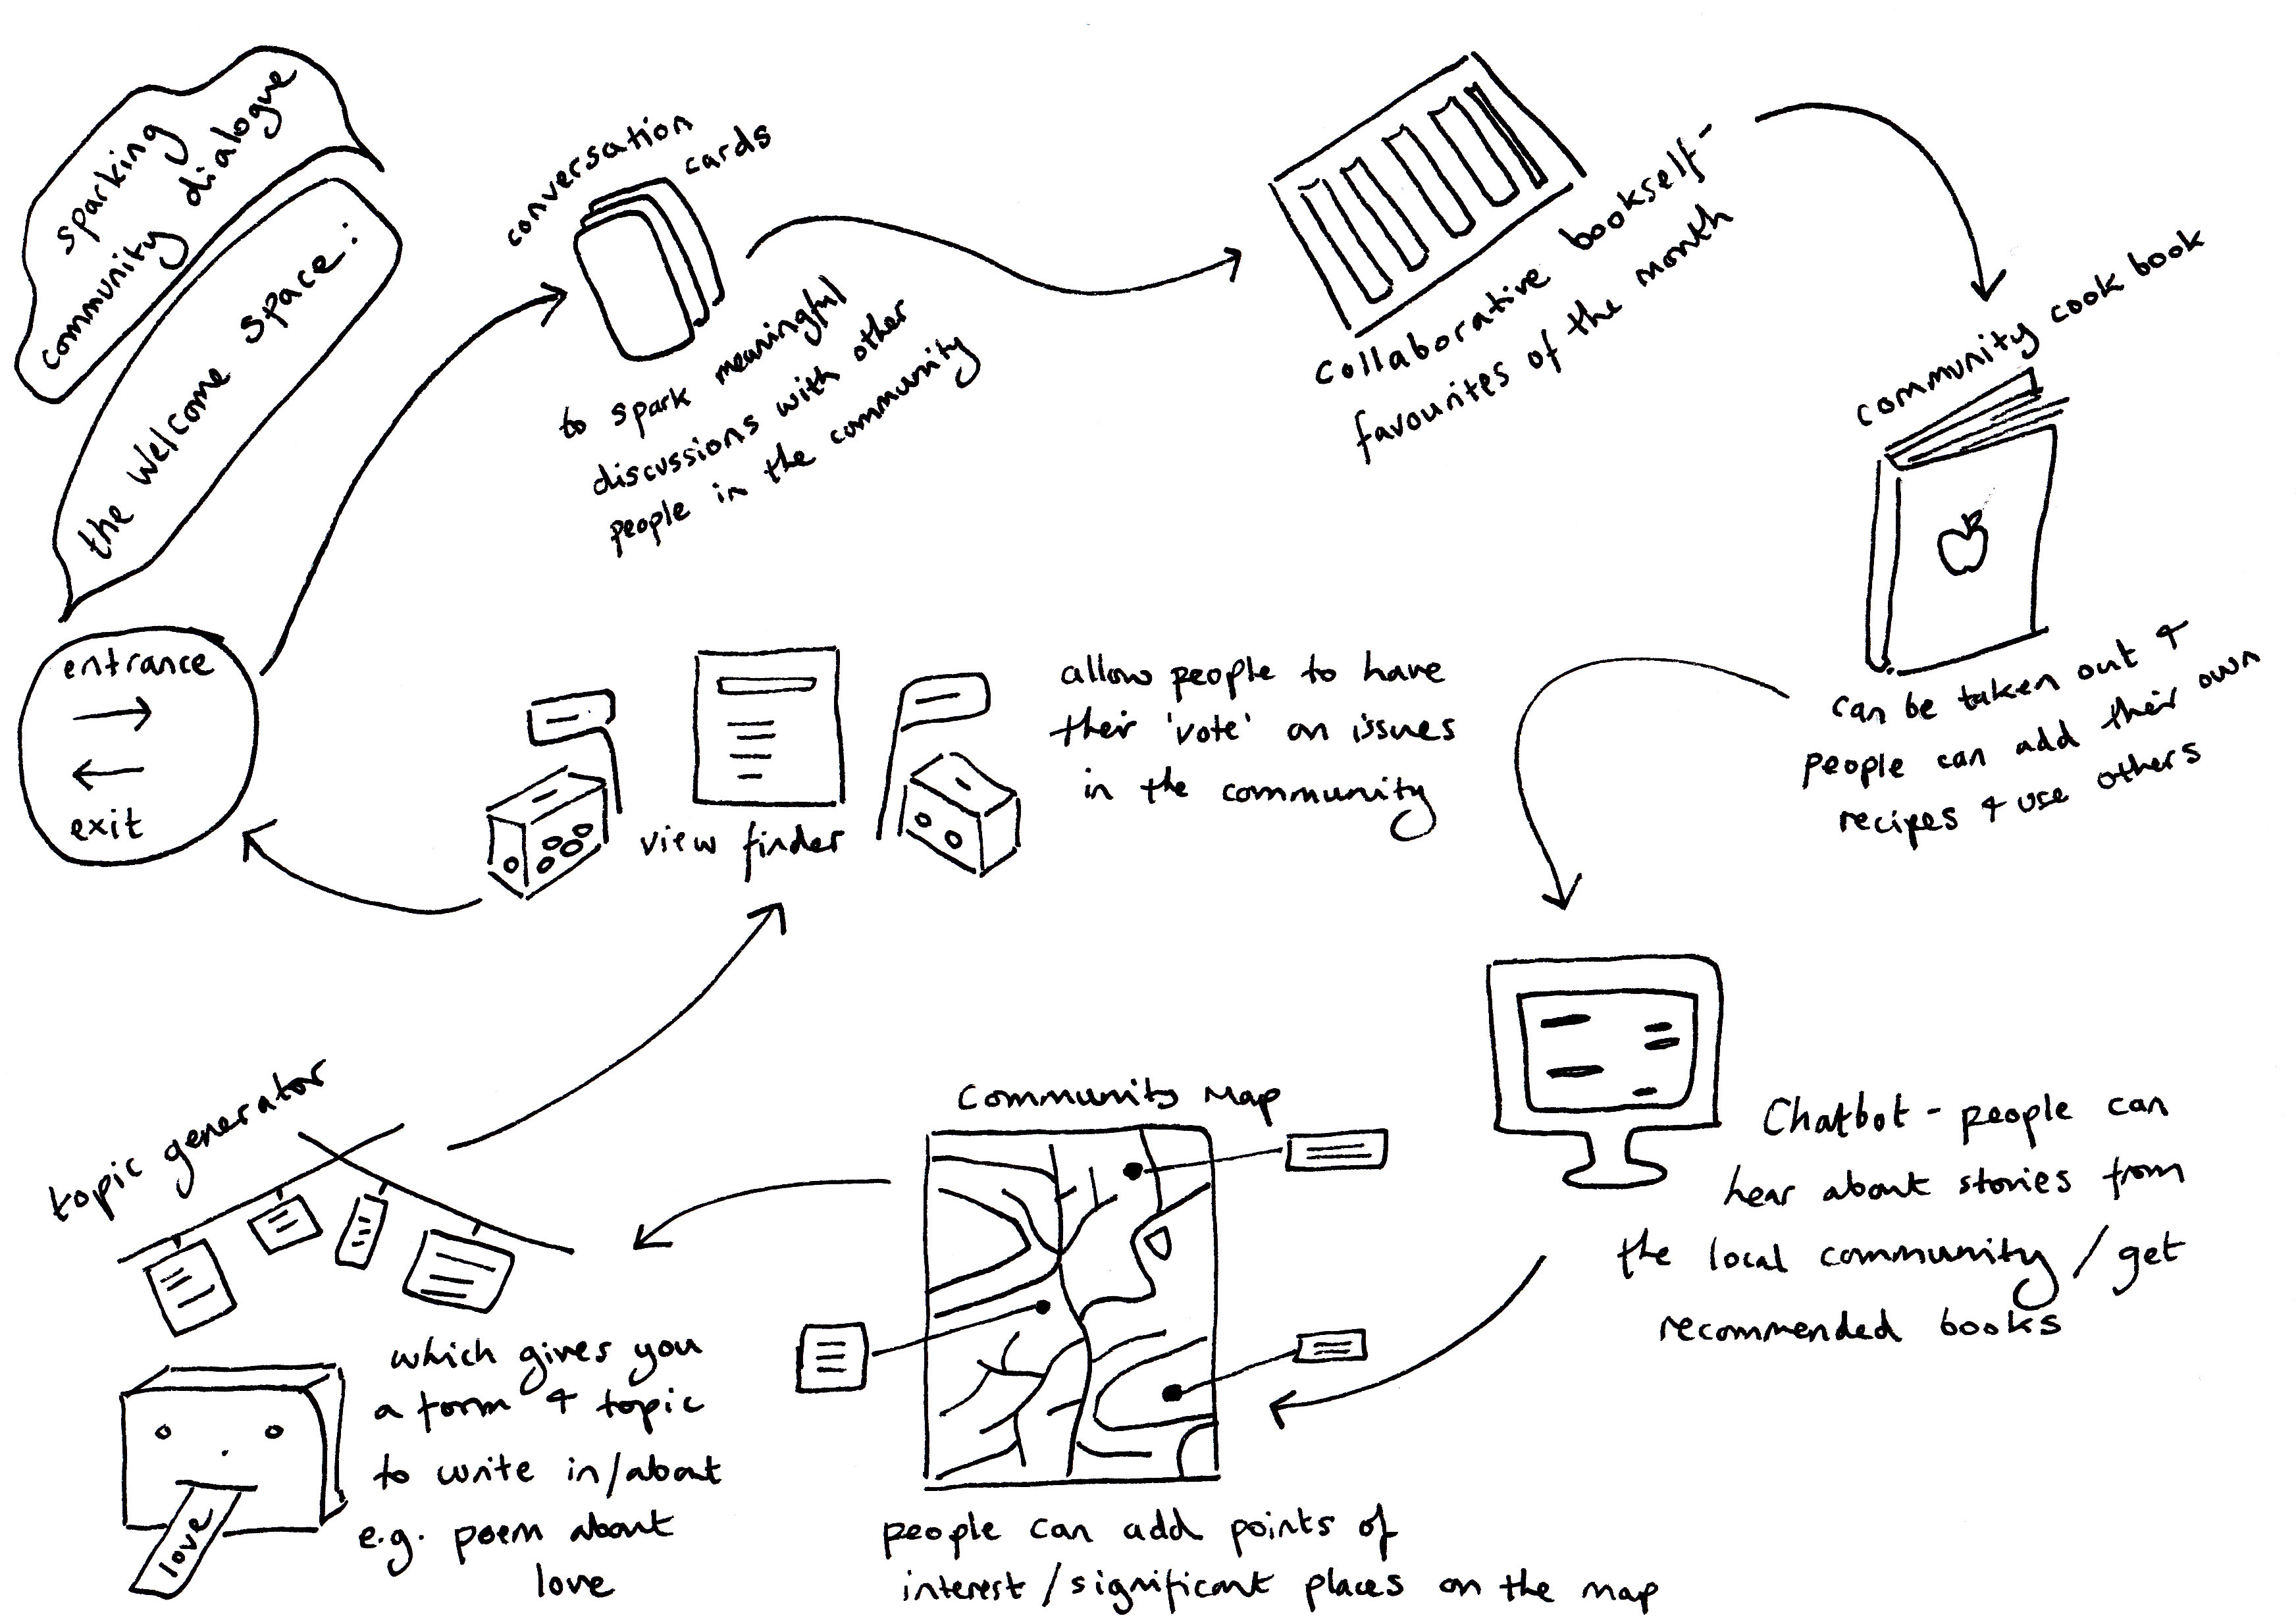 the welcome space:
sparking
community dialogue
entrance
exit
conversation
cards
to spark meaningful
discussions with other
people in the community
Collaborative bookself-
favourites of the month
community cook book
can be taken out &
people can add their own
recipes & use others
Chatbot - people can
hear about stories from
the local community / get
recommended books
Community Map
people can add points of
interest / significant places on the map
topic generator
which gives you
a form & topic
to write in/about
e.g. poem about
love
love
view finder
allow people to have
their 'vote' on issues
in the community